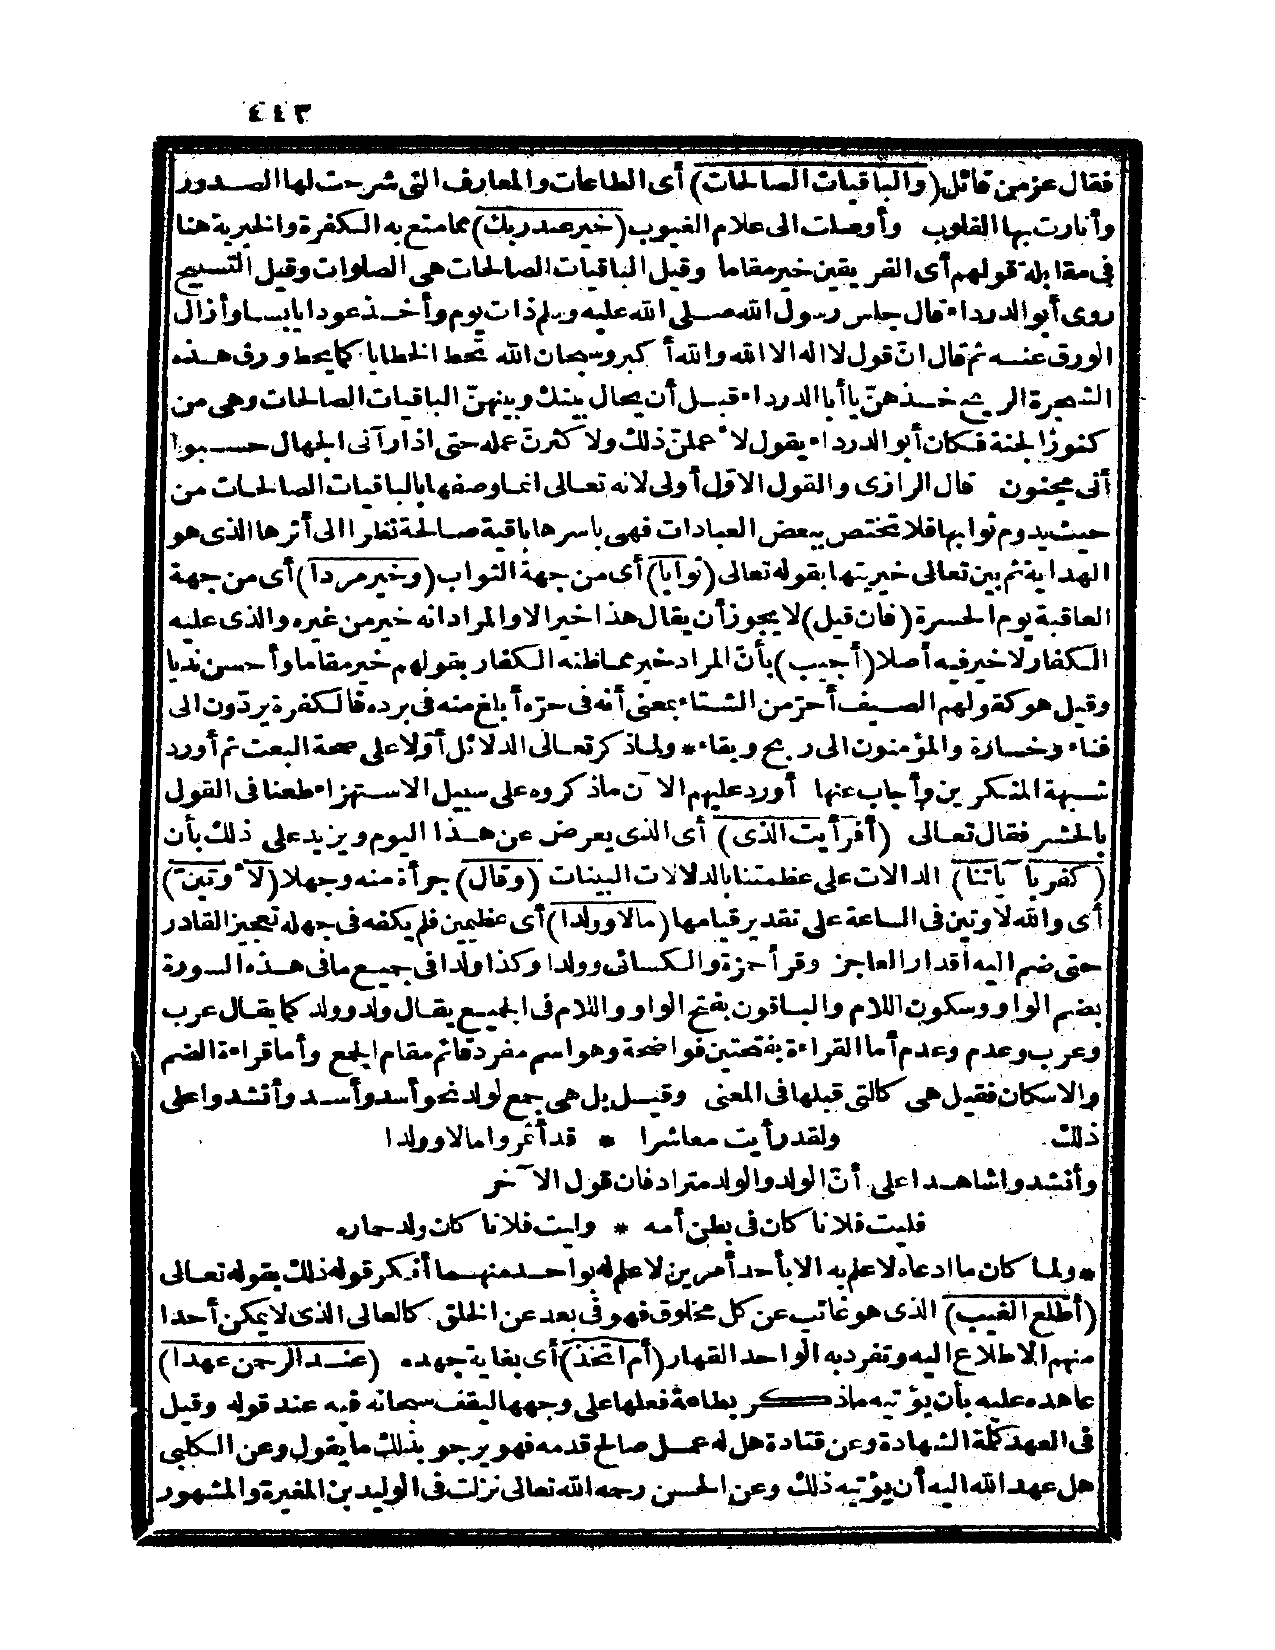 ٤٤٣
فقال عز من قائل (والباقيات الصالحات) أى الطاعات والمعارف التى شرحت لها الصدور
وأنارت بها القلوب وأوصلت الى علام الغيوب (خير عند ربك) مما متع به الكفرة والخيرية هنا
فى مقابلة قولهم أى الفريقين خير مقاما وقيل الباقيات الصالحات هى الصلوات وقيل التسبيح
روى أبو الدرداء قال جلس رسول الله صلى الله عليه وسلم ذات يوم وأخذ عودا يابسا وأزال
الورق عنه ثم قال انّ قول لا اله الا الله والله أكبر وسبحان الله تحط الخطايا كما يحط ورق هذه
الشجرة الريح خذهنّ يا أبا الدرداء قبل أن يحال بينك وبينهنّ الباقيات الصالحات وهى من
كنوز الجنة فكان أبو الدرداء يقول لا ٔعملنّ ذلك ولا كثرنّ عمله حتى اذا رآنى الجهال حسبوا
أنى مجنون قال الرازى والقول الاوّل أولى لانه تعالى انما وصفها بالباقيات الصالحات من
حيث يدوم ثوابها فلا تختص ببعض العبادات فهى باسرها باقية صالحة نظرا الى أثرها الذى هو
الهداية ثم بين تعالى خيريتها بقوله تعالى (ثوابا) أى من جهة الثواب (وخير مردا) أى من جهة
العاقبة يوم الحسرة (فان قيل) لا يجوز أن يقال هذا خير الا والمراد انه خير من غيره والذى عليه
الكفار لا خير فيه أصلا (أجيب) بأنّ المراد خير مما ظنه الكفار بقولهم خير مقاما وأحسن نديا
وقيل هو كقولهم الصيف أحرّ من الشتاء بمعنى أنه فى حرّه أبلغ منه فى برده فالكفرة يردّون الى
فناء وخسارة والمؤمنون الى ربح وبقاء * ولما ذكر تعالى الدلائل أوّلا على صحة البعث ثم أورد
شبهة المنكرين وأجاب عنها أورد عليهم الآن ما ذكروه على سبيل الاستهزاء طعنا فى القول
بالحشر فقال تعالى (أفرأيت الذى) أى الذى يعرض عن هذا اليوم ويزيد على ذلك بأن
(كفر بآياتنا) الدالات على عظمتنا بالدلالات البينات (وقال) جرأة منه وجهلا (لا ٔوتينّ)
أى والله لاوتين فى الساعة على تقدير قيامها (مالا وولدا) أى عظيمين فلم يكفه فى جهله تعجيز القادر
حتى ضم اليه اقدار العاجز وقرأ حمزة والكسائى وولدا وكذا ولدا فى جميع ما فى هذه السورة
بضم الواو وسكون اللام والباقون بفتح الواو واللام فى الجميع يقال ولد وولد كما يقال عرب
وعرب وعدم وعدم أما القراءة بفتحتين فواضحة وهو اسم مفرد قائم مقام الجمع وأما قراءة الضم
والاسكان فقيل هى كالتى قبلها فى المعنى وقيل بل هى جمع لولد نحو أسد وأسد وأنشدوا على
ذلك ولقد رأيت معاشرا * قد أثمروا مالا وولدا
وأنشدوا شاهدا على أنّ الولد والولد مترادفان قول الآخر
فليت فلانا كان فى بطن أمه * وليت فلانا كان ولد حمار
* ولما كان ما ادعاه لا علم به الا بأحد أمرين لا علم له بواحد منهما أنكر قوله ذلك بقوله تعالى
(أطلع الغيب) الذى هو غائب عن كل مخلوق فهو فى بعد عن الخلق كالعالى الذى لا يمكن أحدا
منهم الاطلاع اليه وتفرد به الواحد القهار (أم اتخذ) أى بغاية جهده (عند الرحمن عهدا)
عاهده عليه بأن يؤتيه ما ذكر بطاعة فعلها على وجهها ليقف سبحانه فيه عند قوله وقيل
فى العهد كلمة الشهادة وعن قتادة هل له عمل صالح قدمه فهو يرجو بذلك ما يقول وعن الكلبى
هل عهد الله اليه أن يؤتيه ذلك وعن الحسن رحمه الله تعالى نزلت فى الوليد بن المغيرة والمشهور